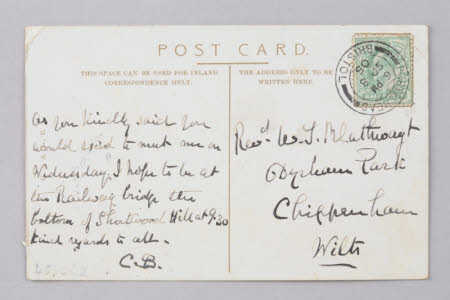 POST CARD.
THIS SPACE CAN BE USED FOR INLAND
CORRESPONDENCE ONLY.
THE ADDRESS ONLY TO BE
WRITTEN HERE.
BRISTOL
As you kindly said you
would send to meet me on
Wednesday. I hope to be at
the Railway bridge the
bottom of Shortwood Hill at 9.30
Kind regards to all -
C.B.
Revd W. T. Blathwayt
Dyrham Park
Chippenham
Wilts